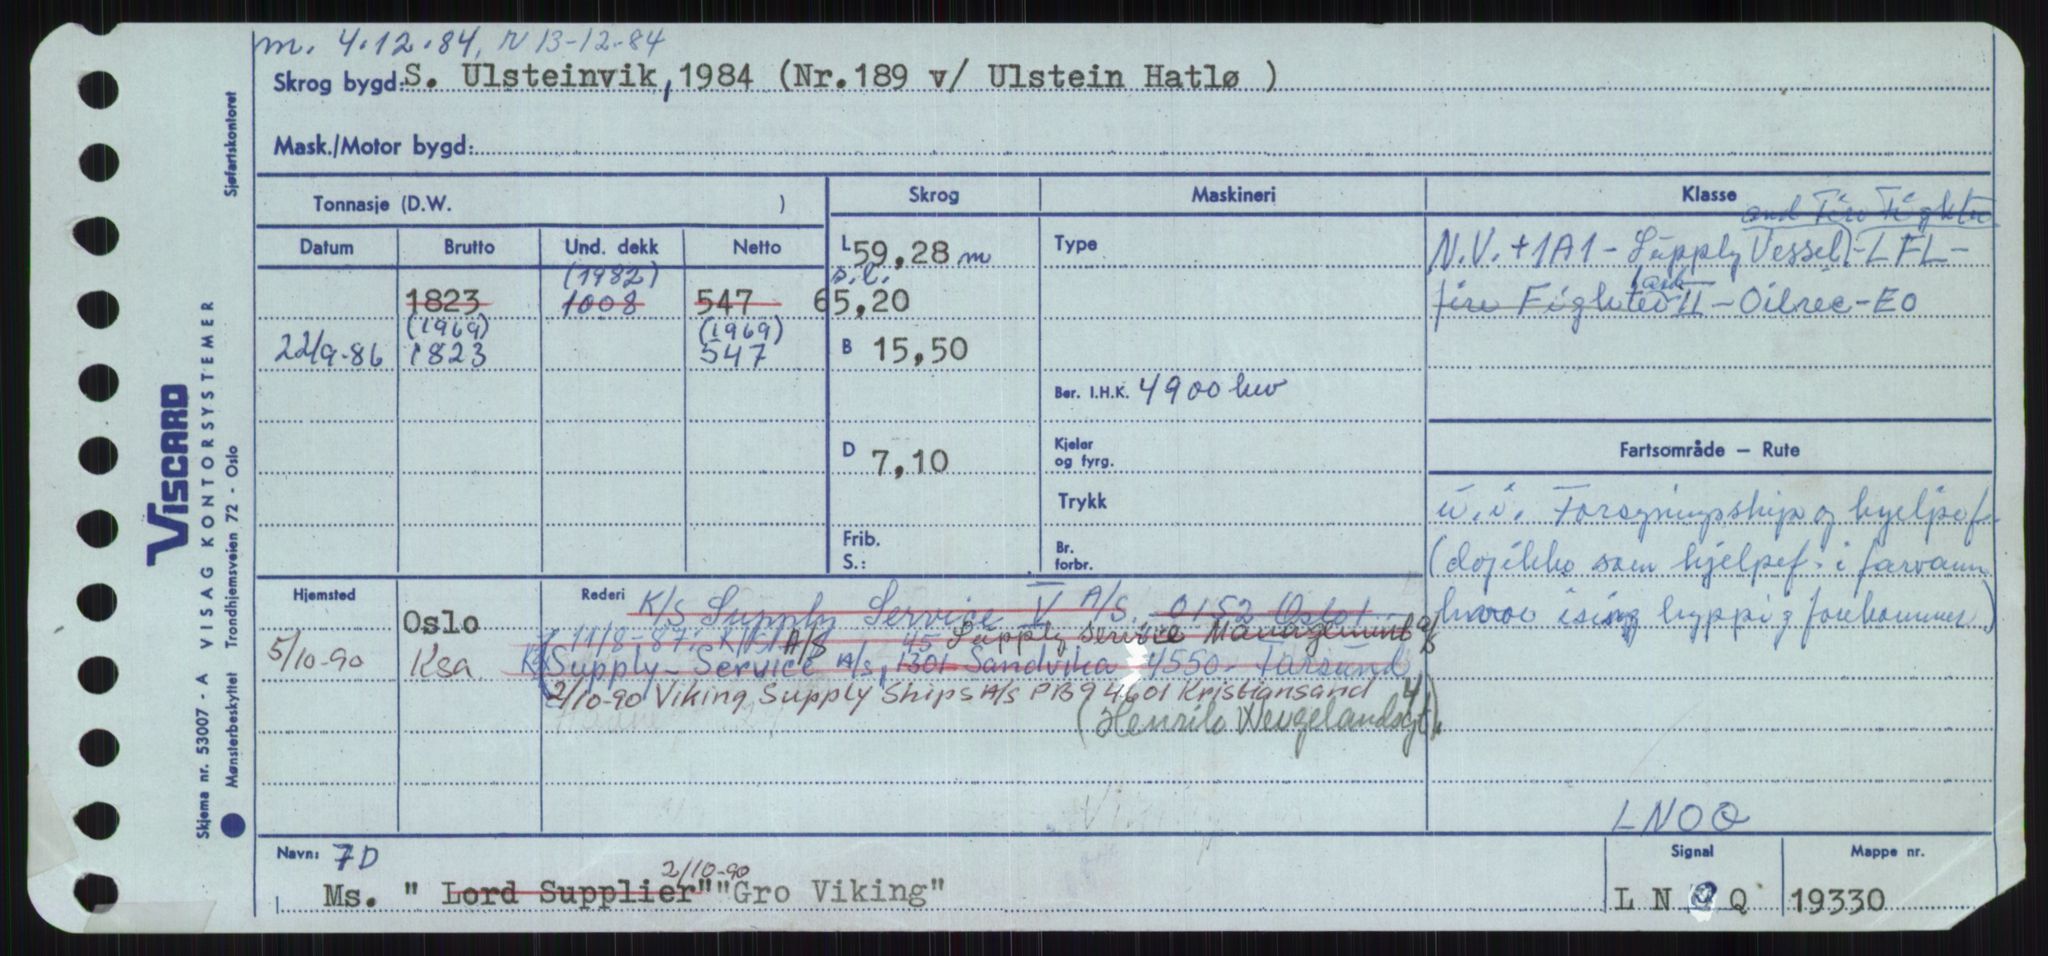 m. 4.12.84, N 13-12-84
Skrog bygd: S. Ulsteinvik, 1984 (Nr.189 v/ Ulstein Hatlø )
Mask./Motor bygd:
Tonnasje (D.W. )
Skrog
Maskineri
Klasse
and Fire Fighter
Datum
Brutto
Und. dekk
Netto
L 59,28 m
Type
N.V. +1A1 - Supply Vessel - LFL -
(1982)
p.l.
1823 1008 547 65,20
fire Fighter II - Oilrec - EO
(1969) (1969)
22/9-86 1823 547
B 15,50
Ber. I.H.K. 4900 hw
D 7,10
Kjeler og fyrg.
Fartsområde — Rute
Trykk
u.i. Forsyningsskip og hjelpef.
Frib.
S.:
Br. forbr.
(dog ikke som hjelpef. i farvann
Hjemsted
Rederi
K/S Supply Service V A/S. 0152 Oslo 1
hvor ising hyppig forekommer)
Oslo
11/8-87: A/S Supply Service Management
5/10-90 Ksa
Supply-Service A/s, 1301 Sandvika 4550 Farsund
2/10-90 Viking Supply Ships A/s PB 9 4601 Kristiansand
(Henrik Wergelandsgt.
LNOQ
Navn: 7D
2/10-90
Signal
Mappe nr.
Ms. " Lord Supplier" "Gro Viking"
L N O Q
19330
Sjøfartskontoret
VISCARD
VISAG KONTORSYSTEMER
Skjema nr. 53007 - A
Mønsterbeskyttet Trondhjemsveien 72 - Oslo